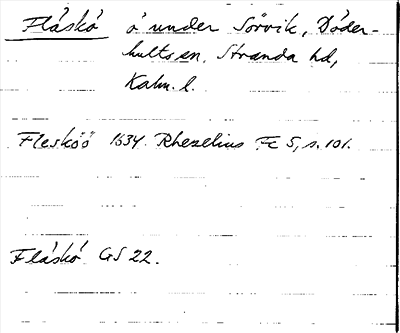 Flåskö ö under Sörvik, Döder-
hults sn, Stranda hd,
Kalm. l.
Flesköö 1634. Rhezelius Fc 5, s. 101.
Flåskö GS 22.